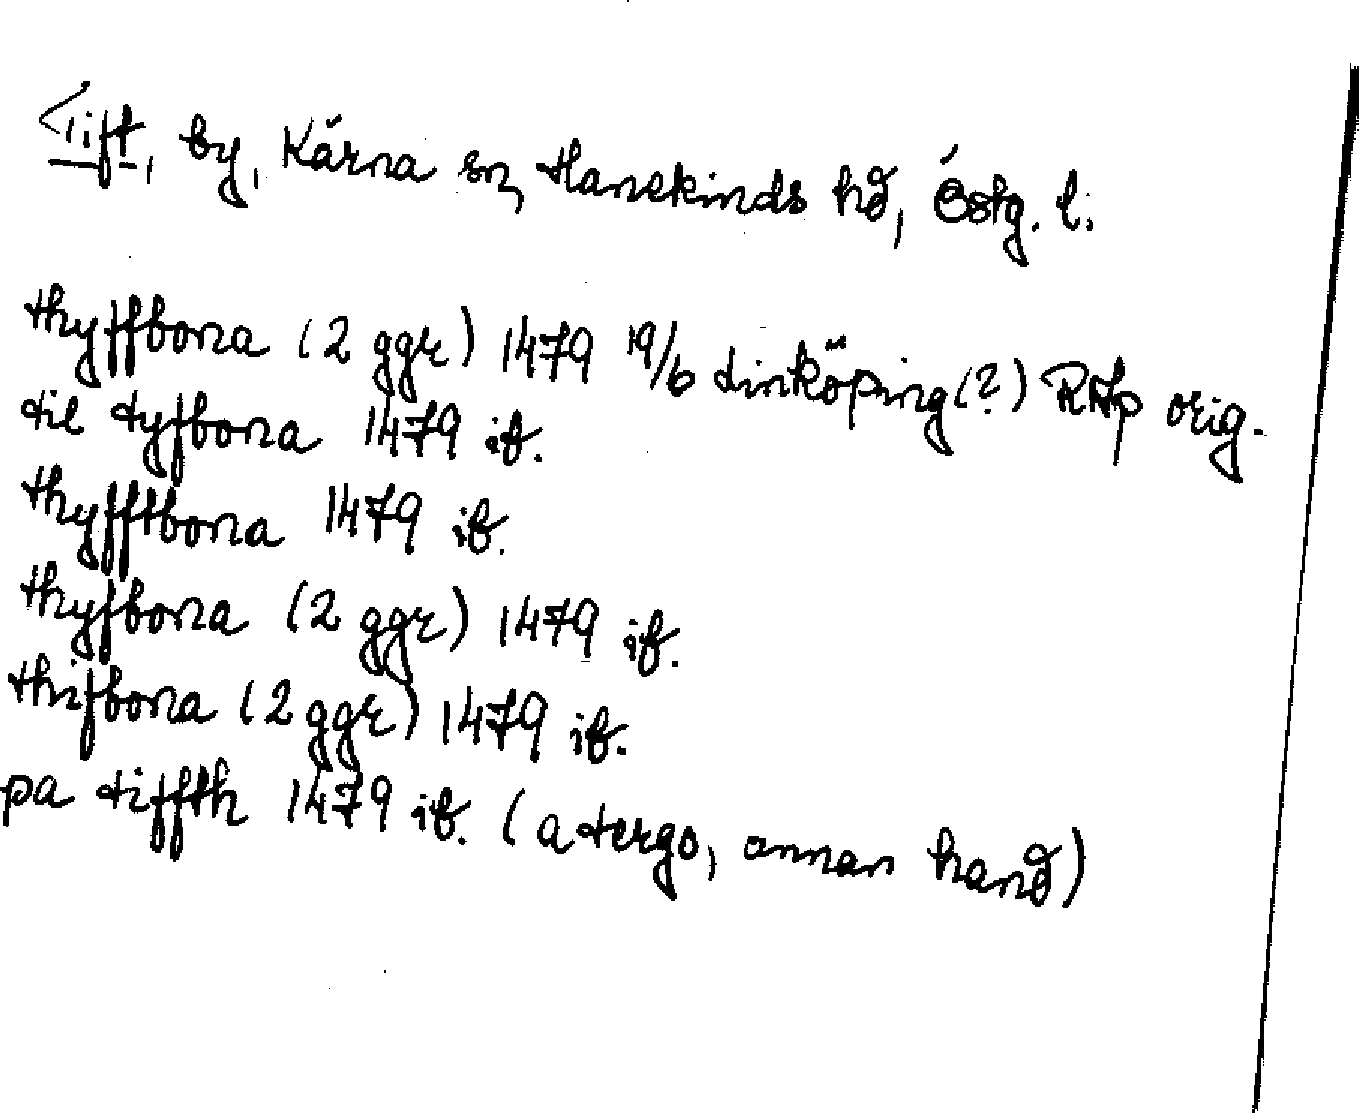 Tift, by, Kärna sn, Hanekinds hd, Östg. l.
thyffbona (2 ggr) 1479 19/6 Linköping (?) RAp orig.
til tyfbona 1479 ib.
thyfftbona 1479 ib.
thyfbona (2 ggr) 1479 ib.
thifbona (2 ggr) 1479 ib.
pa tiffth 1479 ib. (a tergo, annan hand)